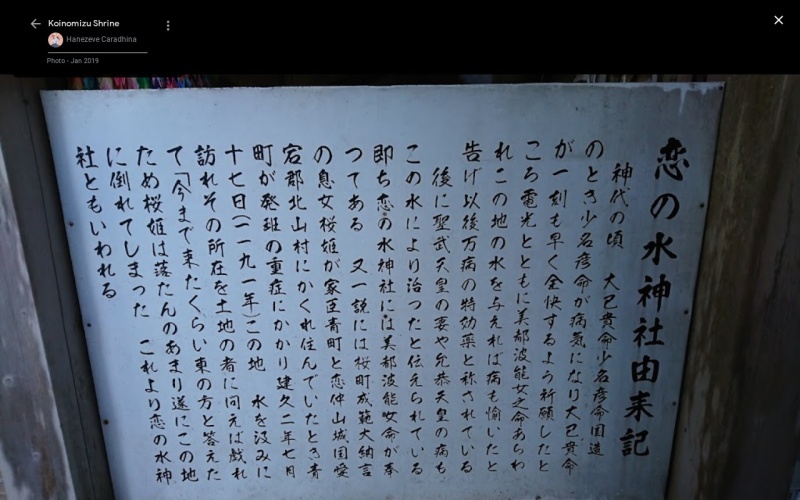 Koinomizu Shrine
Hanezeve Caradhina
Photo - Jan 2019
恋の水神社由来記
神代の頃 大己貴命少名彦命国造
のとき少名彦命が病気になり大己貴命
が一刻も早く全快するよう祈願したと
ころ電光とともに美都波能女之命あらわ
れこの地の水を与えれば病も愉いたと
告げ以後万病の特効薬と称されている
後に聖武天皇の妻や允恭天皇の病も
この水により治ったと伝えられている
即ち恋の水神社には美都波能女命が奉
つてある 又一説には桜町成範大納言
の息女桜姫が家臣青町と恋仲山城国愛
宕郡北山村にかくれ住んでいたとき青
町が発班の重症にかかり建久二年七月
十七日(一一九一年)この地 水を汲みに
訪れその所在を土地の者に問えば戯れ
て「今まで来たくらい東の方と答えた
ため桜姫は落たんのあまり遂にこの地
に倒れてしまった これより恋の水神
社ともいわれる